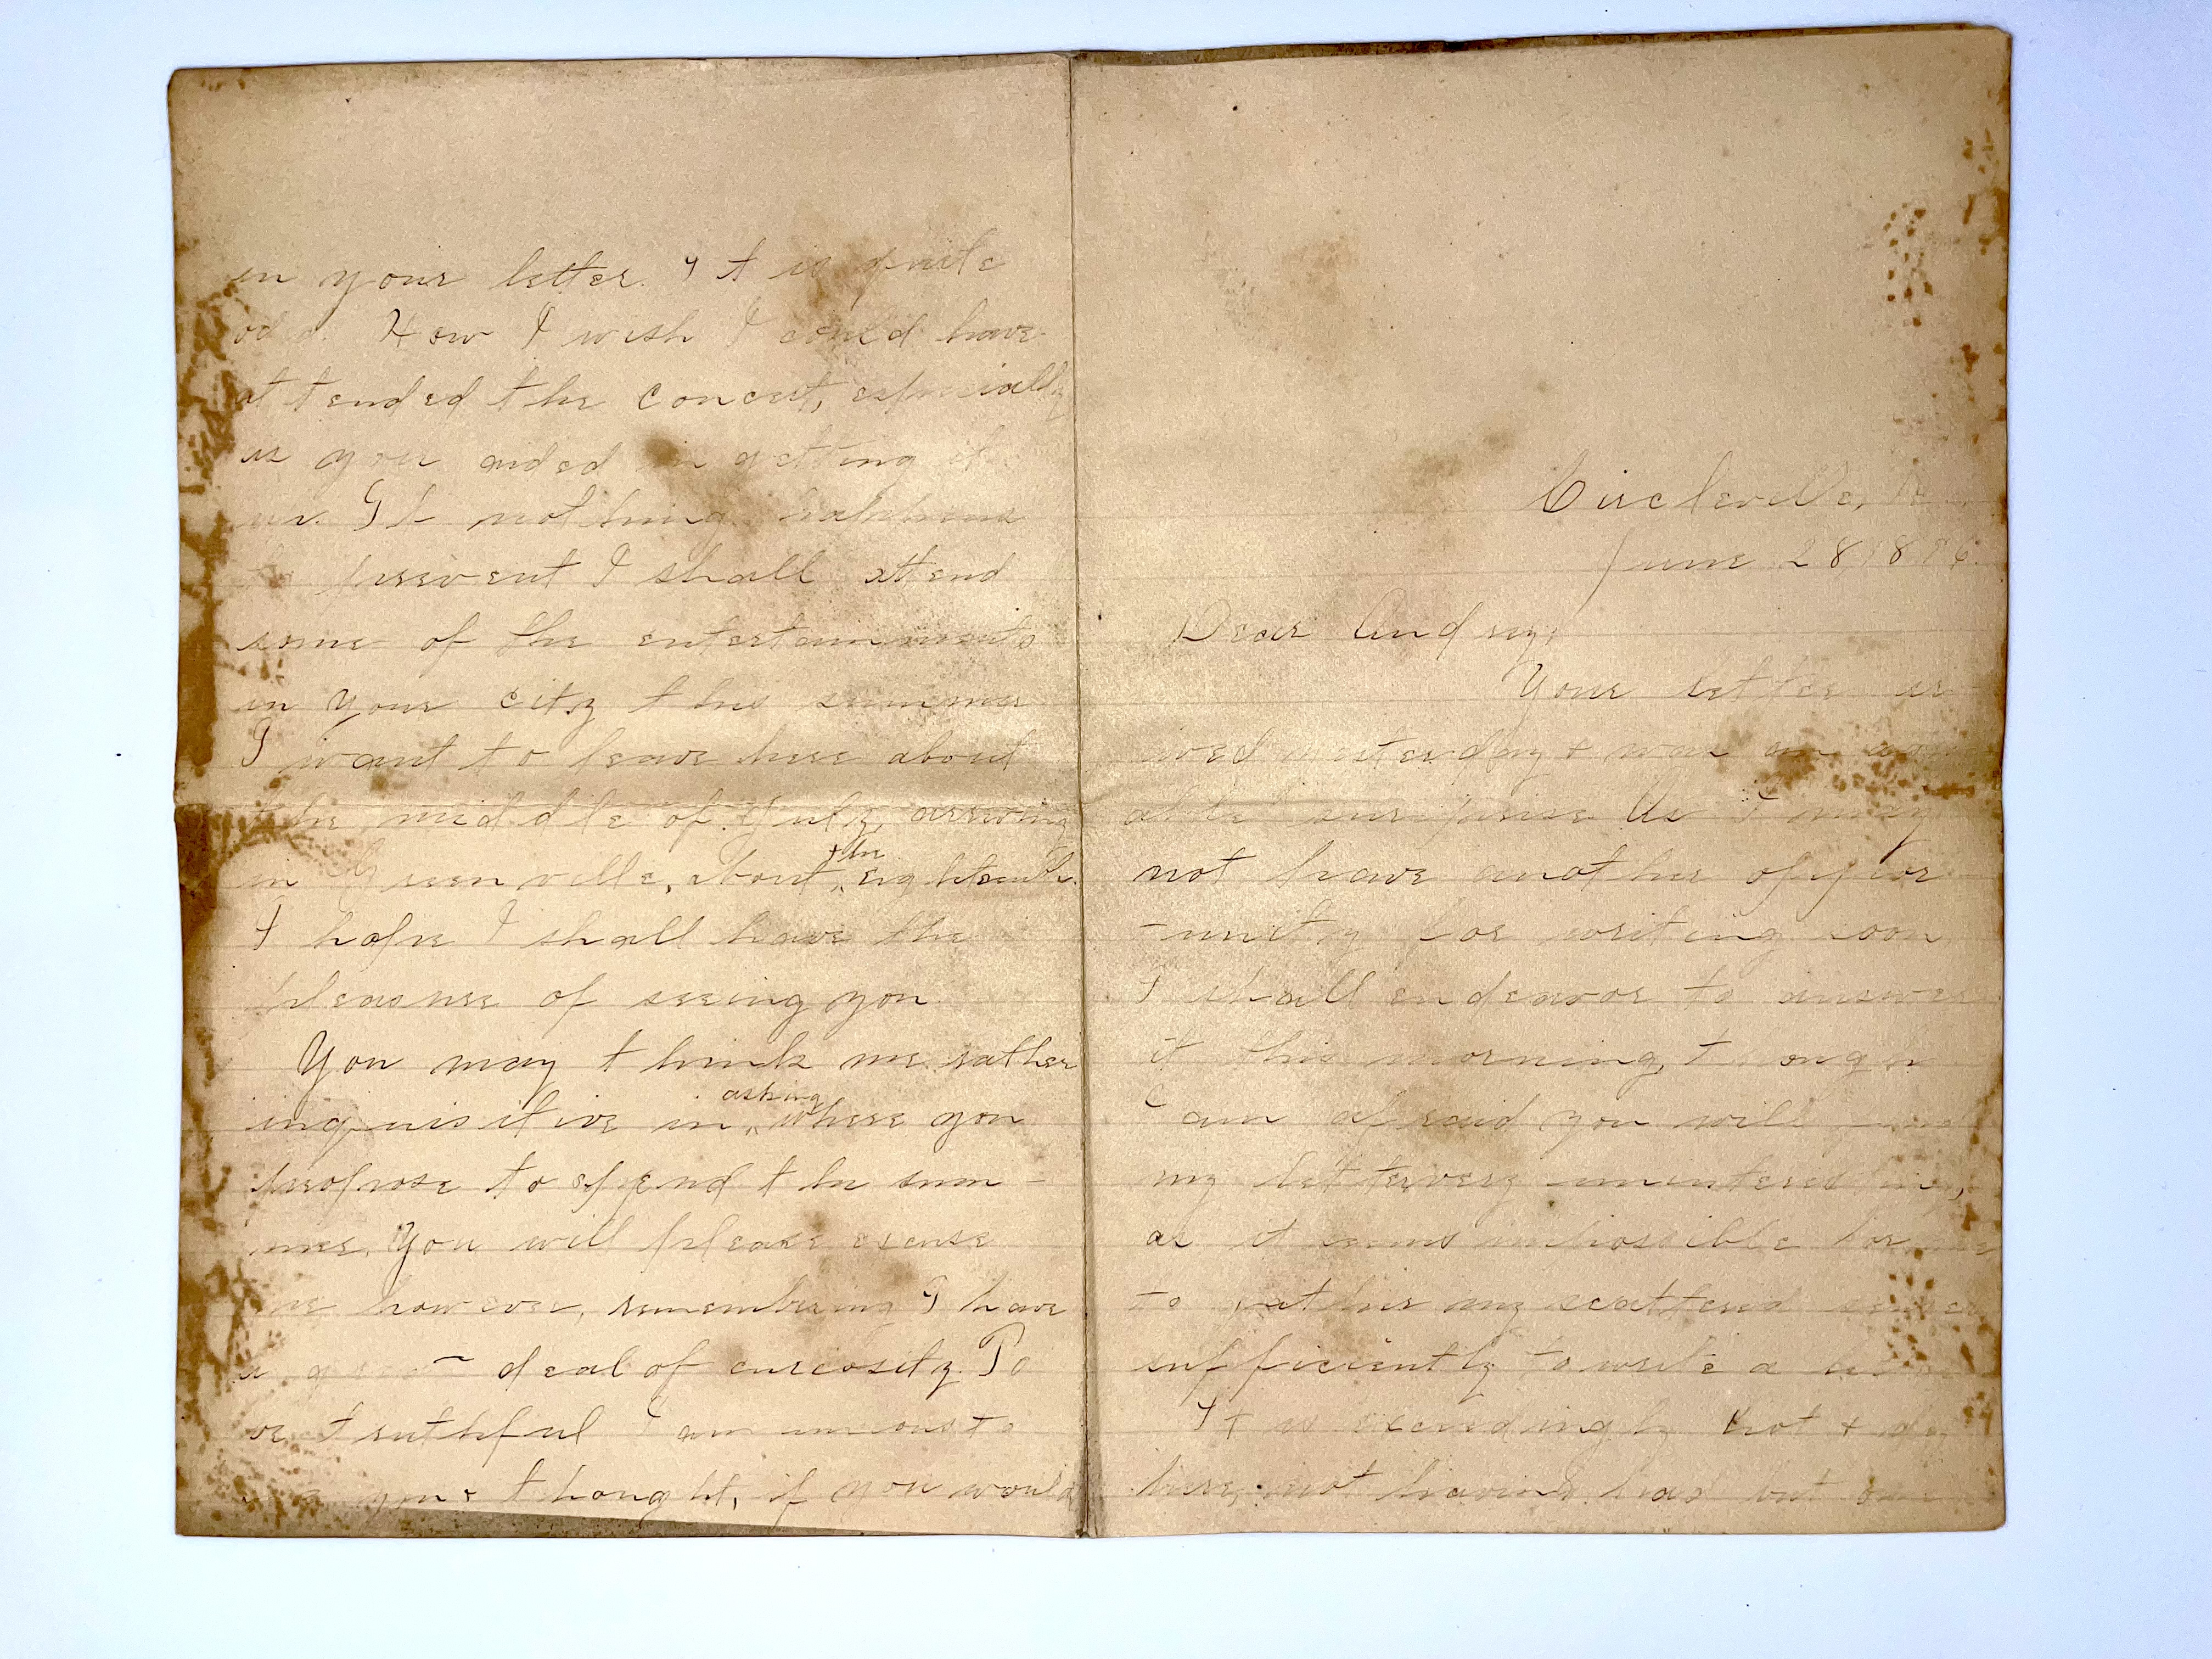 Circleville,
June 28, 18 6.
Dear Andrey,
Your letter ar-
ived yesterday & was an
able surprise As I may
not have another oppor
-unity for writing soon
I shall endeavor to answer
it this morning,
I am afraid you will
my letter very uninteresting,
as it seems impossible for me
to gather my scattered senses
sufficiently to write a
It is exceedingly hot & dry
here, not having had but
in your letter. It is quite
odd. How I wish I could have
attended the concert, especially
as you aided in getting it
up. If nothing happens
to prevent I shall attend
some of the entertainments
in your city this summer
I want to leave here about
the middle of July, arriving
in Greenville, about the eighteenth.
I hope I shall have the
pleasure of seeing you
You may think me rather
inquisitive in asking where you
propose to spend the sum-
mer. You will please excuse
me however, remembering I have
a great deal of curiosity. To
be truthful I am anxious to
your thought, if you would